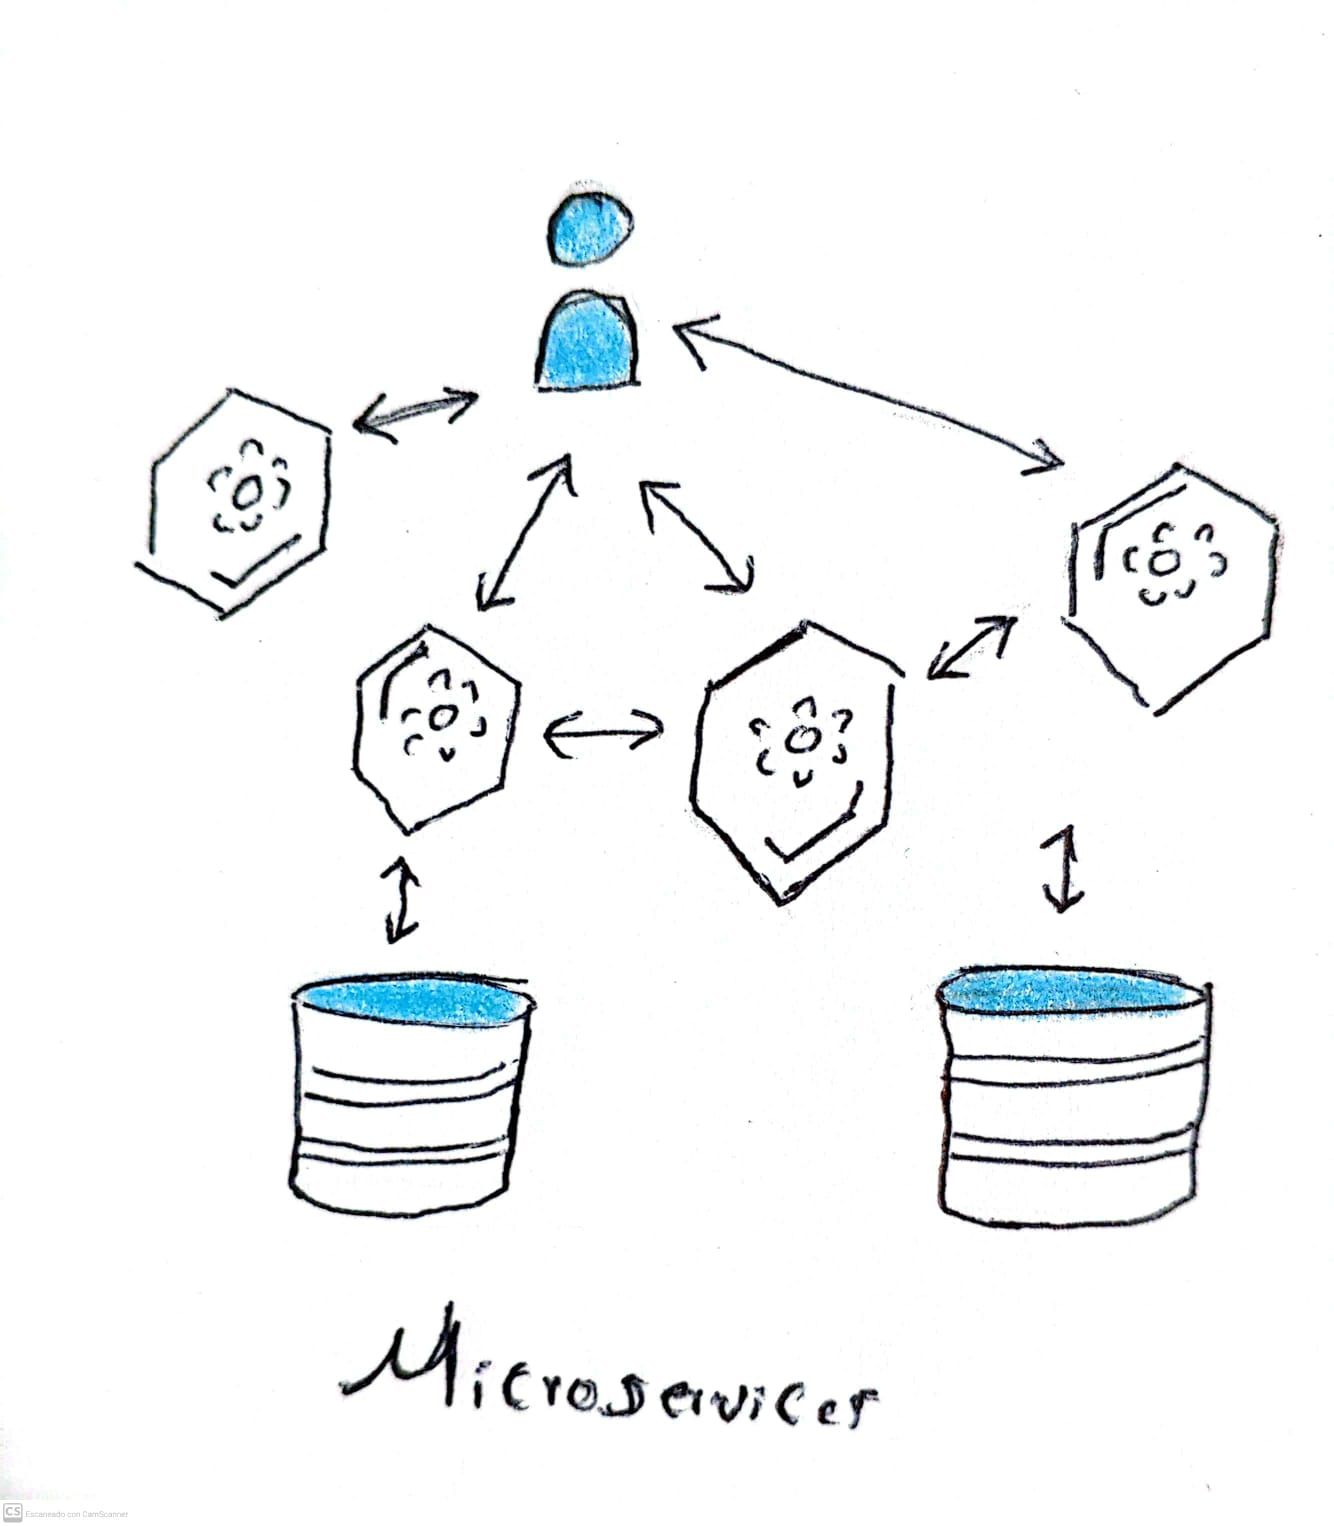 Microservices
CS Escaneado con CamScanner